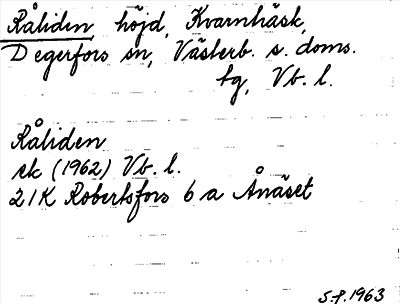 Råliden, höjd, Kvarnhäsk,
Degerfors sn, Västerb. s. doms.
tg, Vb. l.
Råliden
ek (1962) Vb. l.
21K Robertsfors 6 a Ånäset
S.P. 1963